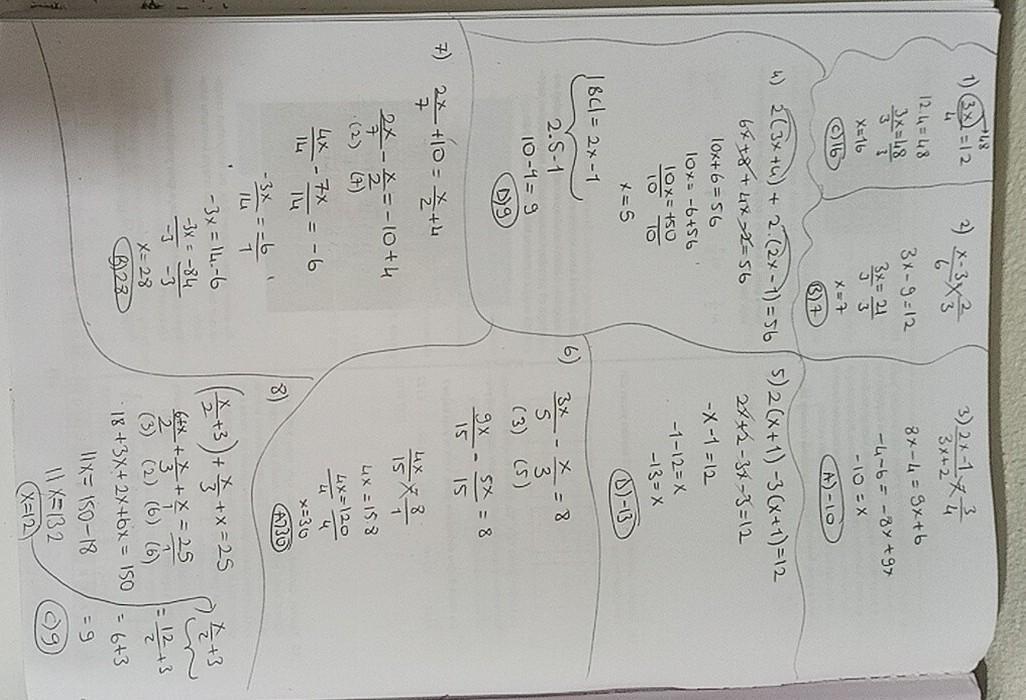 1) 3x/4 = 12 → 48
12.4 = 48
3x/3 = 48/3
x = 16
C) 16
2) x-3/6 = 2/3
3x - 9 = 12
3x/3 = 21/3
x = 7
B) 7
3) 2x-1/3x+2 = 3/4
8x - 4 = 9x + 6
-4 - 6 = -8x + 9x
-10 = x
A) -10
4) 2(3x+4) + 2.(2x-1) = 56
6x + 8 + 4x - 2 = 56
10x + 6 = 56
10x = -6 + 56
10x/10 = +50/10
x = 5
|BC| = 2x - 1
2.5 - 1
10 - 1 = 9
D) 9
5) 2(x+1) - 3(x+1) = 12
2x + 2 - 3x - 3 = 12
-x - 1 = 12
-1 - 12 = x
-13 = x
D) -13
6) 3x/5 - x/3 = 8
(3) (5)
9x/15 - 5x/15 = 8
4x/15 = 8/1
4x = 15.8
4x/4 = 120/4
x = 30
A) 30
7) 2x/7 + 10 = x/2 + 4
2x/7 - x/2 = -10 + 4
(2) (7)
4x/14 - 7x/14 = -6
-3x/14 = -6/1
-3x = 14.-6
-3x/-3 = -84/-3
x = 28
B) 28
8)
(x/2 + 3) + x/3 + x = 25
6+x/2 + x/3 + x/1 = 25/1
(3) (2) (6) (6)
18 + 3x + 2x + 6x = 150
11x = 150 - 18
11x = 132
x = 12
x/2 + 3
= 12/2 + 3
= 6 + 3
= 9
C) 9